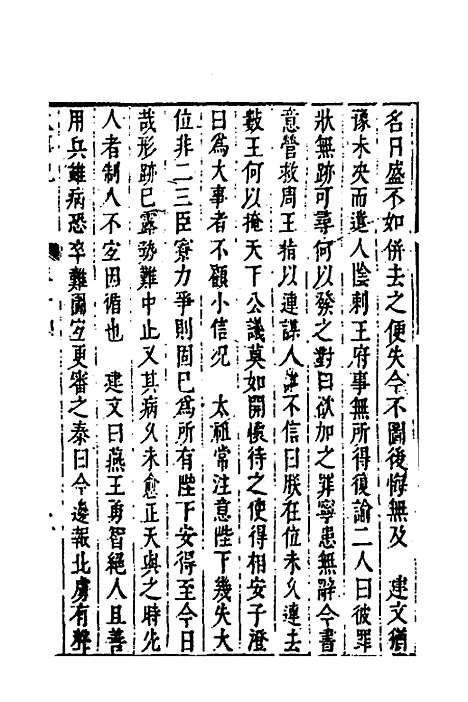 名日盛不如併去之便失今不圖後悔無及　建文猶
豫未央而遣人陰刺王府事無所得復諭二人曰彼罪
狀無跡可尋何以發之對曰欲加之罪寧患無辭今書
意營救周王指以連謀人誰不信曰朕在位未久連去
數王何以掩天下公議莫如開懷待之使得相安子澄
曰爲大事者不顧小信况　太祖常注意陛下幾失大
位非二三臣寮力爭則固巳爲所有陛下安得至今日
哉形跡巳露勢難中止又其病久未愈正天與之時先
人者制人不宜因循也　建文曰燕王勇智絕人且善
用兵雖病恐卒難圖宜更審之泰曰今邊報北虜有聲